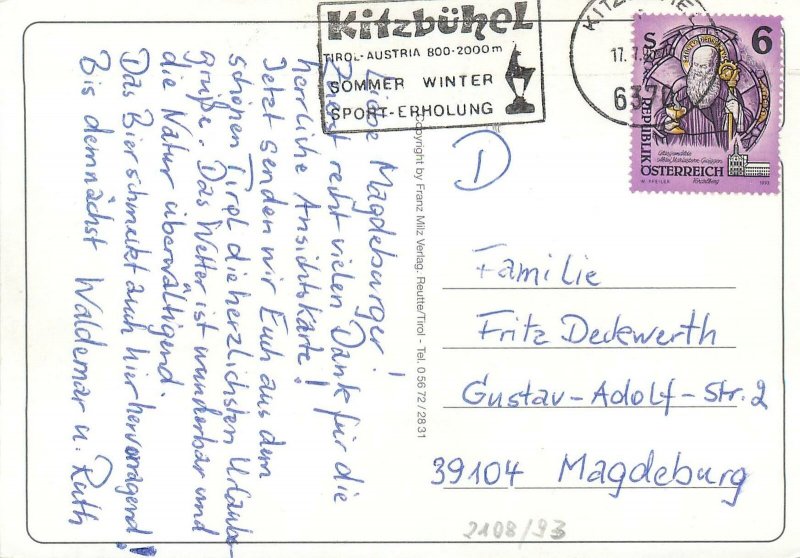 Kitzbühel
TIROL-AUSTRIA 800-2000m
SOMMER WINTER
SPORT-ERHOLUNG
17.7.9
637
S 6
REPUBLIK
ÖSTERREICH
1993
Liebe Magdeburger!
Zuerst recht vielen Dank für die
herrliche Ansichtskarte!
Jetzt senden wir Euch aus dem
schönen Tirol die herzlichsten Urlaubs-
grüße. Das Wetter ist wunderbar und
die Natur überwältigend.
Das Bier schmeckt auch hier hervorragend!
Bis demnächst Waldemar u. Ruth
Copyright by Franz Milz Verlag, Reutte/Tirol - Tel. 0 56 72 / 28 31
D
Familie
Fritz Deckwerth
Gustav-Adolf-Str. 2
39104 Magdeburg
2108/93